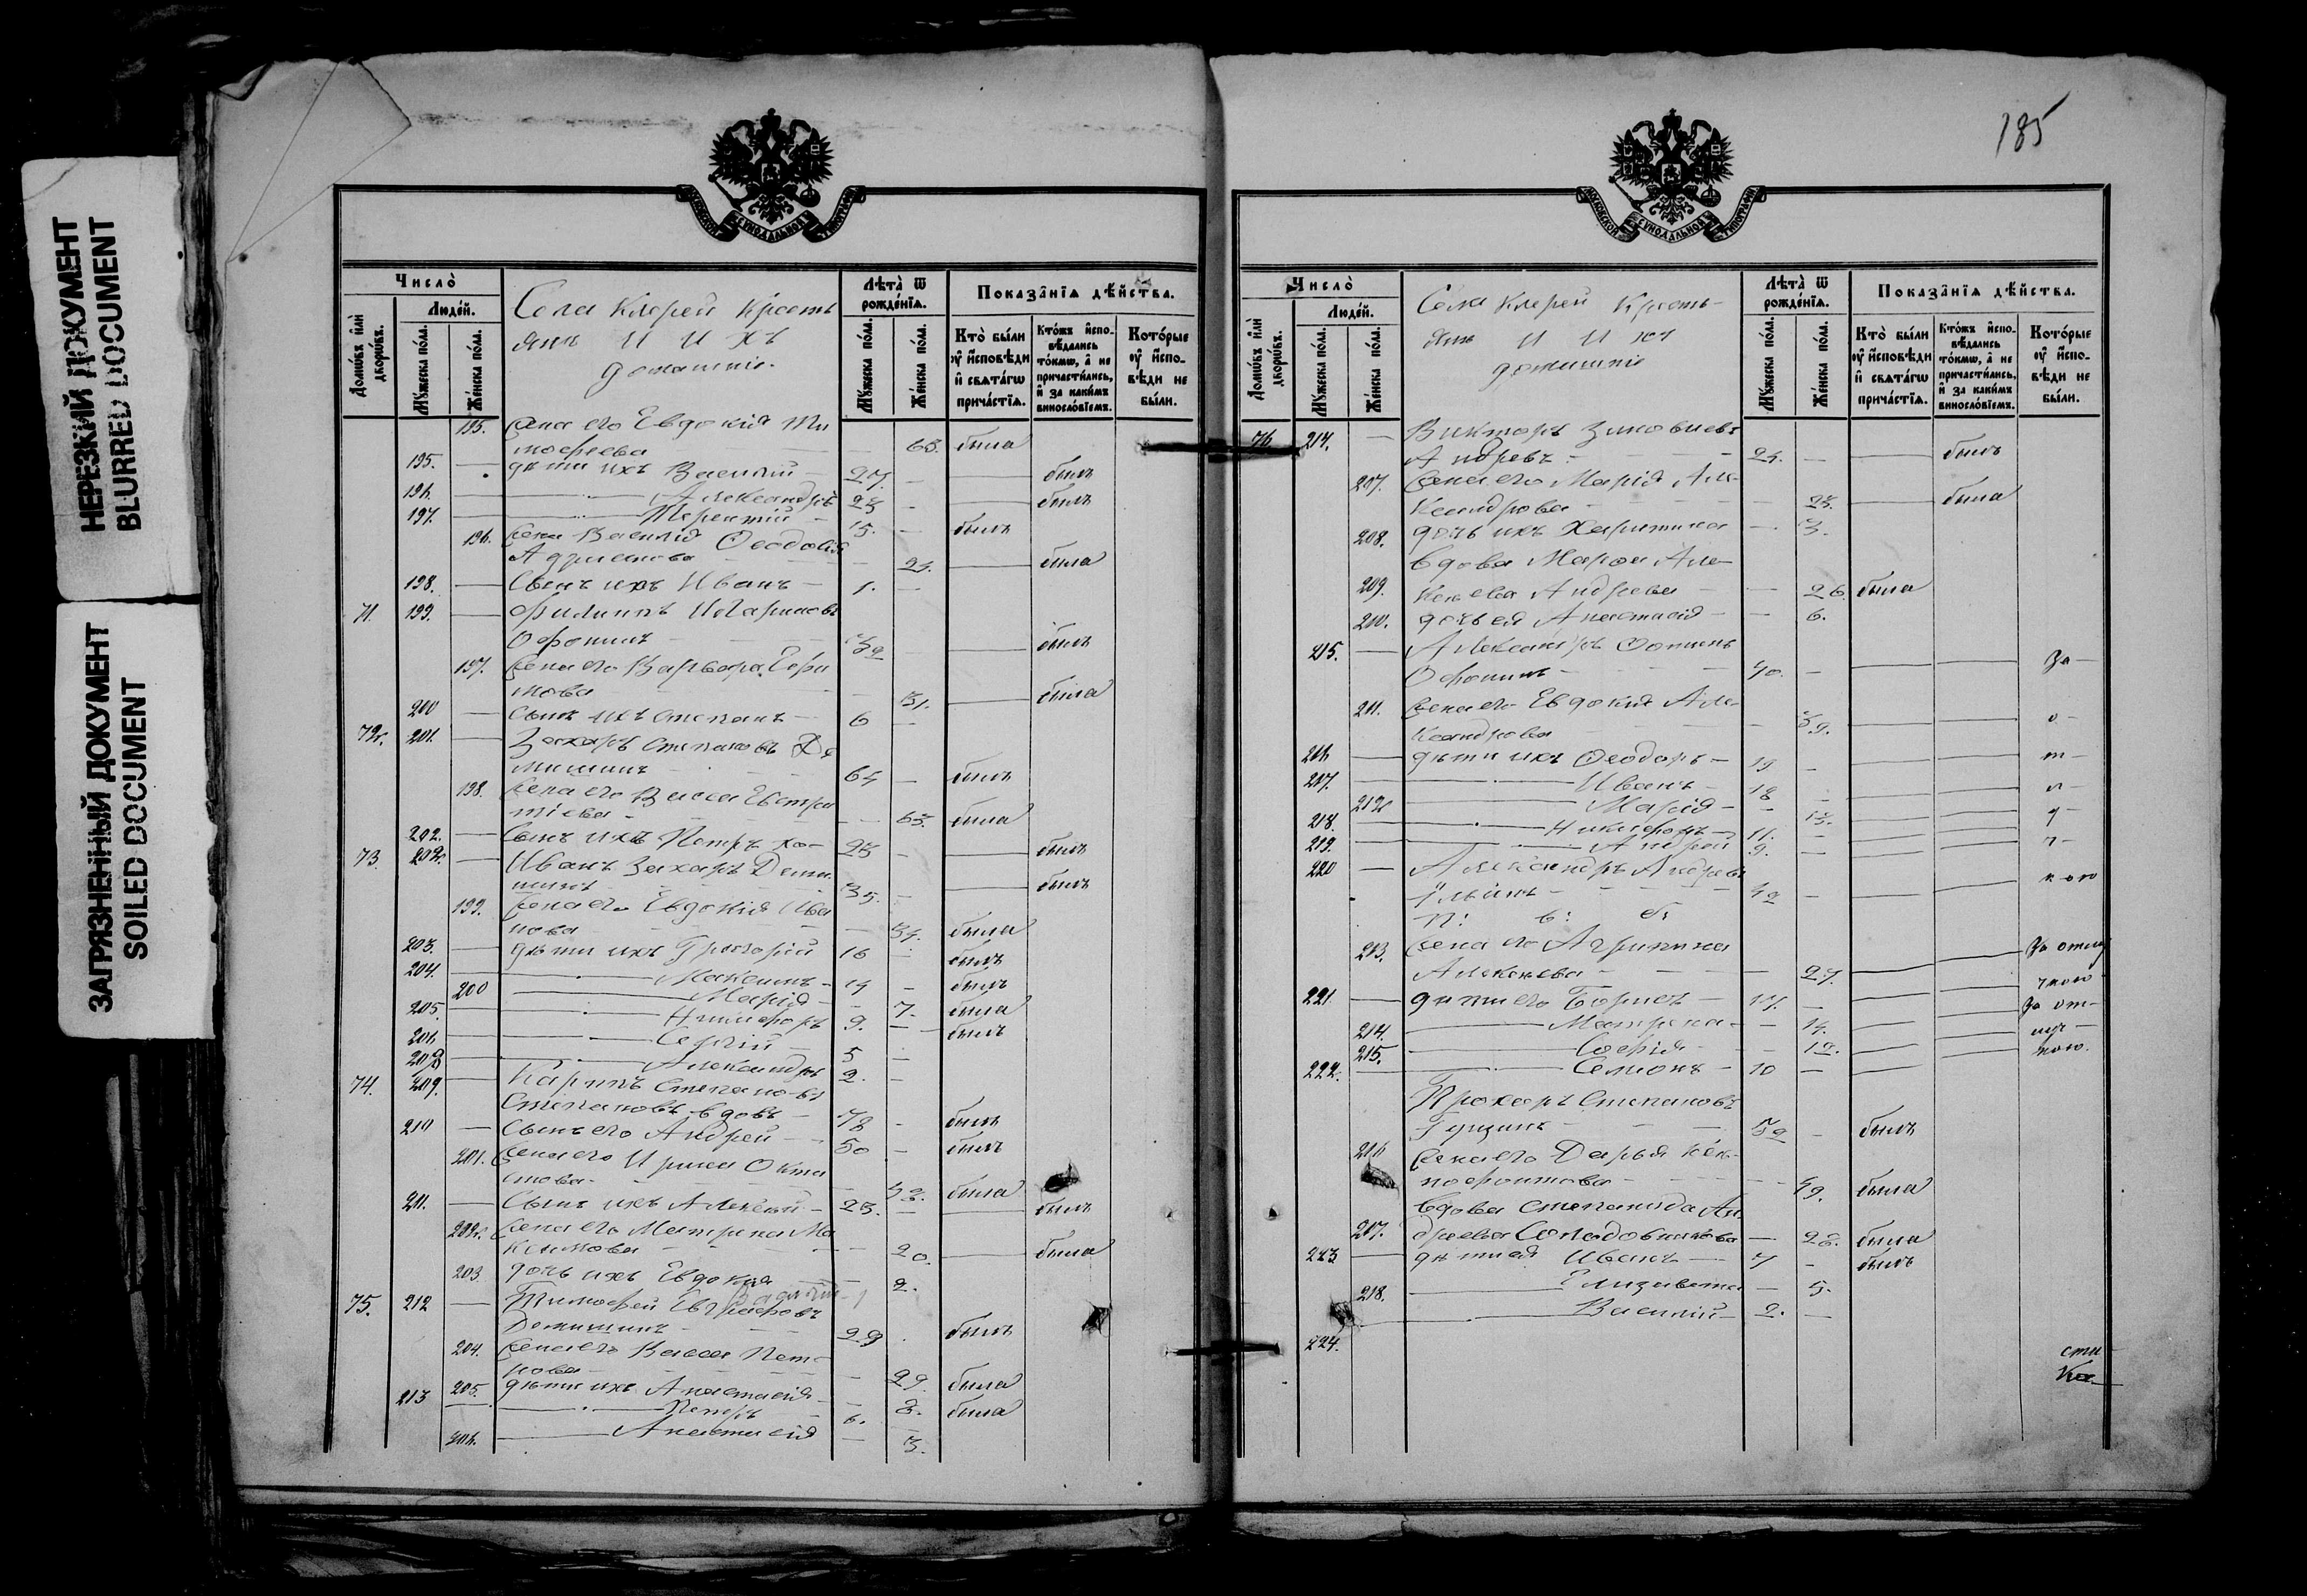 НЕРЕЗКИЙ ДОКУМЕНТ
BLURRED DOCUMENT
ЗАГРЯЗНЕННЫЙ ДОКУМЕНТ
SOILED DOCUMENT
МОСКОВСКОЙ СѴНОДАЛЬНОЙ ТИПОГРАФІИ
Число̀
Людей.
Домѡвъ и҆лѝ дворѡвъ.
Мꙋжеска по́ла.
Же́нска по́ла.
Села Клерей Кресть
янъ и ихъ
домашніе.
Лѣта̀ ѿ рожде́нїѧ.
Мꙋжеска по́ла.
Же́нска по́ла.
Показа̑нїѧ дѣ́йства.
Кто̀ бы́ли ᲂу҆ и҆сповѣди и҆ свѧта́гѡ прича́стїѧ.
Кто́жъ и҆спо-вѣдались то́кмѡ, а҆ не причасти́лись, и҆ за каки́мъ винослові́емъ.
Кото́рые ᲂу҆ и҆спо-вѣди не бы́ли.
195. жена его Евдокія Ти
мофеева 63. была
195. дѣти ихъ Василій 27. былъ
196. Александръ 23 былъ
197. Терентій 15. былъ
196. жена Василія Ѳеодосія
23. была
198. Сынъ ихъ Иванъ 1.
71. 199. Филиппъ Иларіоновъ
Офонинъ 32 былъ
197. жена его Варвара Ефи
мова 31. была
200 сынъ ихъ Степанъ 6
72. 201. Захаръ Степановъ Де
мишинъ 64 былъ
198. жена его Васса Евстра
тіева 63. была
202. Сынъ ихъ Петръ хо- 23 былъ
73. 202. Иванъ Захаръ Деми
шинъ 35. былъ
199. жена его Евдокія Ива
нова 34. была
203. дѣти ихъ Григорій 16 былъ
204. Максимъ 14 былъ
200 Марія 7. была
205. Никифоръ 9. былъ
206. Сергій 5
208 Александръ 2.
74. 209. Карпъ Степановъ
Степановъ вдовъ 78 былъ
210 Сынъ его Андрей 50 былъ
201. жена его Ирина
была
211. Сынъ ихъ Алексѣй 23. былъ
202. жена его Матрена Ма
ксимова 20. была
203 дочь ихъ Евдокія 2.
75. 212 Тимофей Евграфовъ
Демишинъ 29 былъ
204. жена его Васса Пет-
рова 29. была
205. дѣти ихъ Анастасія 8. была
213 Петръ 6.
206. Анастасія 3.
185
МОСКОВСКОЙ СѴНОДАЛЬНОЙ ТИПОГРАФІИ
Число̀
Людей.
Домѡвъ и҆лѝ дворѡвъ.
Мꙋжеска по́ла.
Же́нска по́ла.
Села Клерей Кресть-
янъ и ихъ
домашніе
Лѣта̀ ѿ рожде́нїѧ.
Мꙋжеска по́ла.
Же́нска по́ла.
Показа̑нїѧ дѣ́йства.
Кто̀ бы́ли ᲂу҆ и҆сповѣди и҆ свѧта́гѡ прича́стїѧ.
Кто́жъ и҆спо-вѣдались то́кмѡ, а҆ не причасти́лись, и҆ за каки́мъ винослові́емъ.
Кото́рые ᲂу҆ и҆спо-вѣди не бы́ли.
76 214. Викторъ Зиновьевъ
Андревъ 24. былъ
207. жена его Марія Але
ксандрова 23. была
208. дочь ихъ Харитина 3.
вдова Марѳа Але-
209. ксѣева Андрева 26. была
210. дочь ея Анастасія 6.
215. Александръ Фотинъ
Офонинъ 40. За
211. жена его Евдокія Але
ксандрова 39. о
216 дѣти ихъ Ѳеодоръ 19 т
217. Иванъ 18 л
212 Марія 13. у
218. Никифоръ 11.
219. Андрей 9. ч
220 Александръ Андревъ
Ильинъ 42 кою
П: в: б:
213. жена его Агрипина
Алексѣева 27. За отлу
221. дѣти его Борисъ 17. чкою
214. Матрена 14. За от-
215. Софія 12. луч-
222. Семіонъ 10 кою.
Прохоръ Степановъ
Гущинъ 52 былъ
216 жена его Дарья Ксе-
нофонтова 49. была
Вдова Степанида Ан
217. дреева Солдовникова 28. была
223 дѣти ея Иванъ 7 былъ
218. Елизавета 5.
Василій 2.
224.